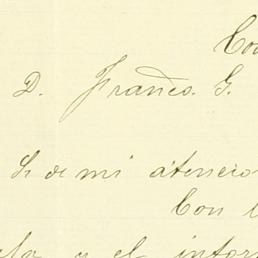 Co
D. Franco. G.
Sr de mi atencio
Con l
y el infor